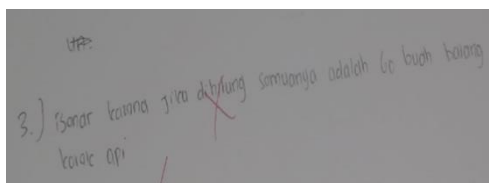 3.) Benar karena jika dihitung semuanya adalah 60 buah batang
korek api